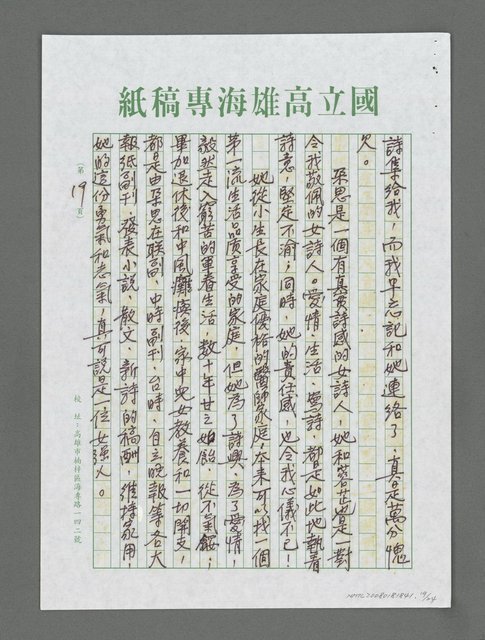 國立高雄海專稿紙
詩集給我，而我早忘記和她連絡了，真是萬分愧
欠。
朵思是一個有真實詩感的女詩人，她和蓉芷也是一對
令我敬佩的女詩人。愛情、生活、寫詩，都是如此地執著
詩意，堅定不渝；同時，她的責任感，也令我心儀不已！
她從小生長在家庭優裕的醫師家庭，本來可以找一個
第一流生活品質享受的家庭，但她為了詩興，為了愛情，
毅然走入窮苦的軍眷生活，數十年甘之如飴，從不氣餒，
畢加退休後和中風癱瘓後，家中兒女教養和一切開支，
都是由朵思在聯副、中時副刊、台時、自立晚報等各大
報紙副刊，發表小說、散文、新詩的稿酬，維持家用，
她的這份勇氣和志氣，真可說是一位女強人。
（第19頁）
校址：高雄市楠梓區海專路一四二號
NMTL20080181841 19/24